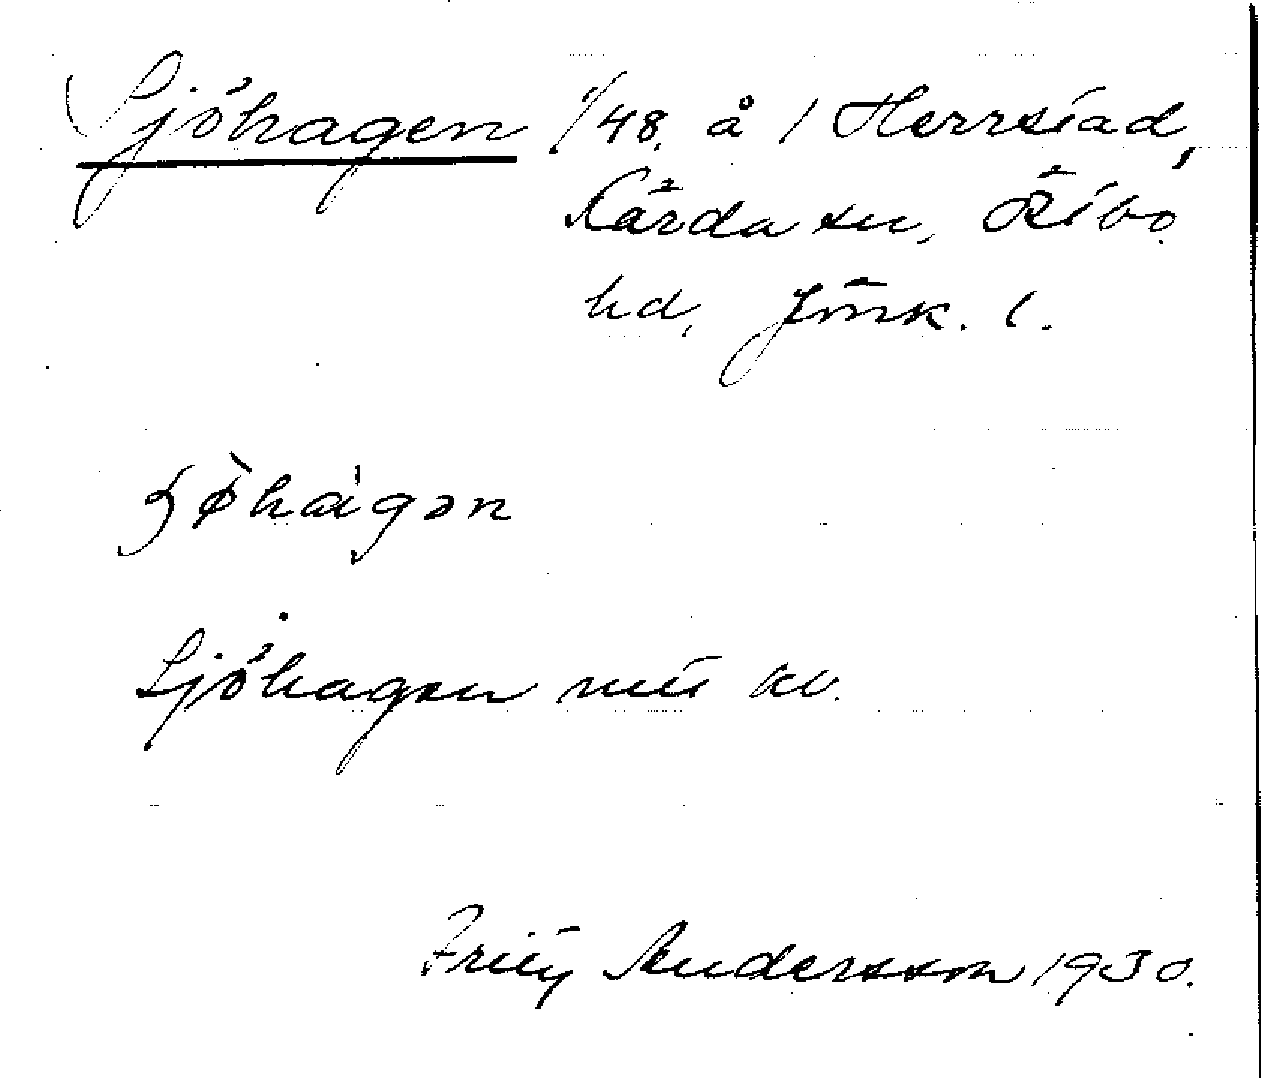 Sjöhagen 1/48 å 1 Herrstad,
Kärda sn, Östbo
hd, Jönk. l.
ʃø̀hàgən
Sjöhagen mtl kv.
Fritz Andersson 1930.